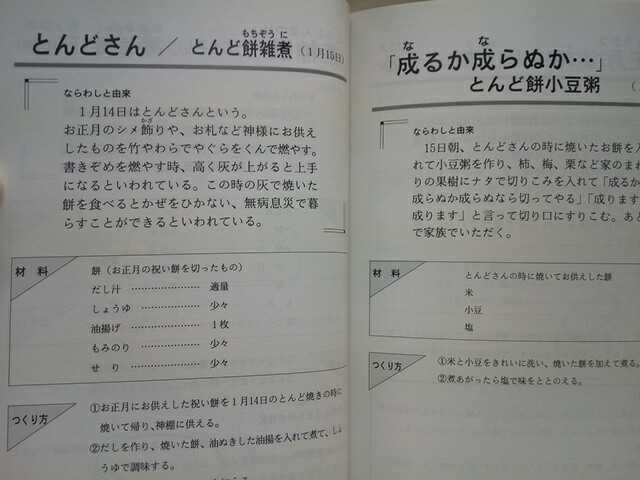 とんどさん / とんど餅雑煮（1月15日）
もちぞうに
ならわしと由来
1月14日はとんどさんという。
お正月のシメ飾りや、お札など神様にお供え
かざ
したものを竹やわらでやぐらをくんで燃やす。
書きぞめを燃やす時、高く灰が上がると上手
になるといわれている。この時の灰で焼いた
餅を食べるとかぜをひかない、無病息災で暮
らすことができるといわれている。
材 料
餅（お正月の祝い餅を切ったもの）
だし汁 ………………… 適量
しょうゆ ………………… 少々
油揚げ ………………… 1枚
もみのり ………………… 少々
せ り ………………… 少々
つくり方
①お正月にお供えした祝い餅を1月14日のとんど焼きの時に
焼いて帰り、神棚に供える。
②だしを作り、焼いた餅、油ぬきした油揚を入れて煮て、しょ
うゆで調味する。
「成るか成らぬか…」
な な
とんど餅小豆粥
ならわしと由来
15日朝、とんどさんの時に焼いたお餅を入
れて小豆粥を作り、柿、梅、栗など家のまわ
りの果樹にナタで切りこみを入れて「成るか
成らぬか成らぬなら切ってやる」「成ります
成ります」と言って切り口にすりこむ。あと
で家族でいただく。
材 料
とんどさんの時に焼いてお供えした餅
米
小豆
塩
つくり方
①米と小豆をきれいに洗い、焼いた餅を加えて煮る。
②煮あがったら塩で味をととのえる。